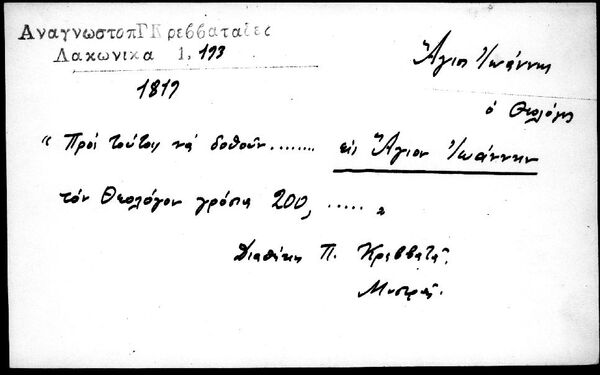 ΑναγνωστοπΓΚρεββαταῖες
Λακωνικα 1, 193
1819
Ἅγιος Ἰωάννης
ὁ Θεολόγος
" Πρός τούτοις νά δοθοῦν........ εἰς Ἅγιον Ἰωάννην
τόν Θεολόγον γρόσια 200, ..... "
Διαθήκη Π. Κρεββατᾶ.
Μυστρᾶς.